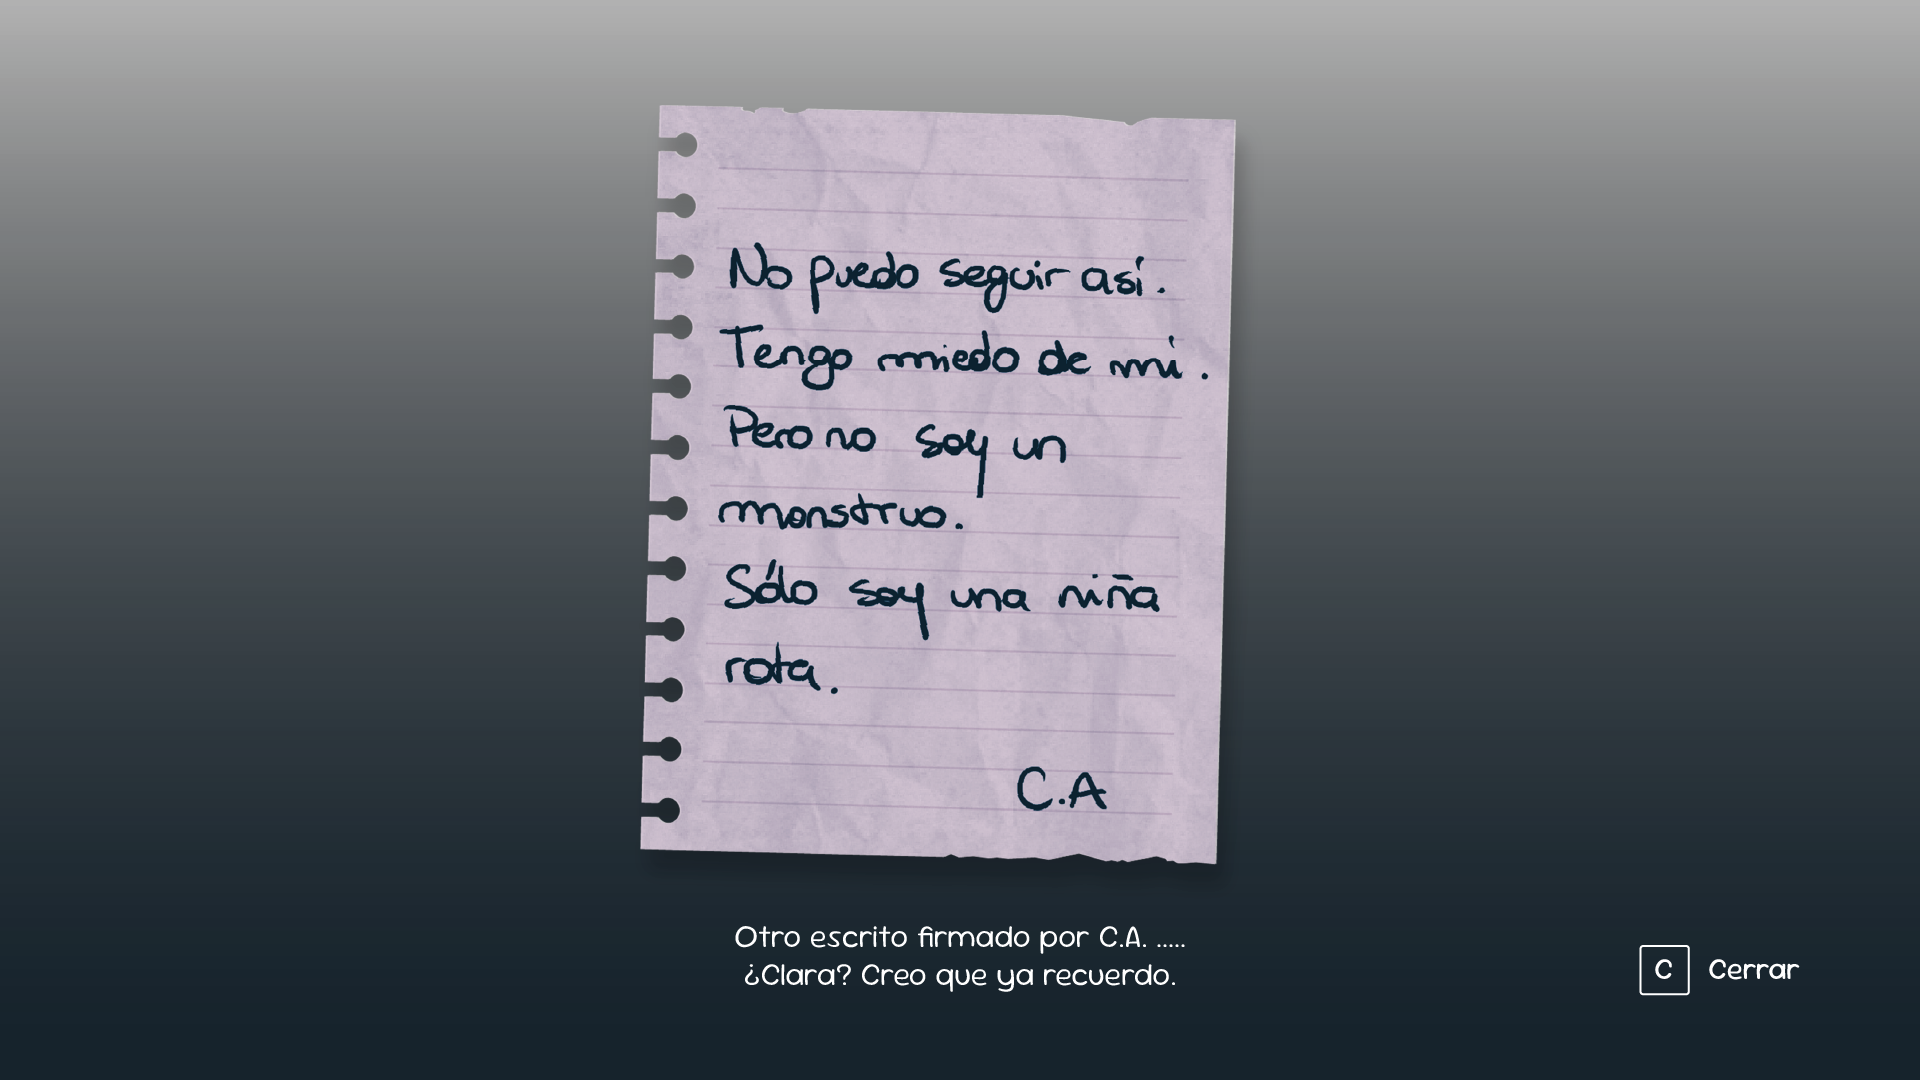 No puedo seguir así.
Tengo miedo de mí.
Pero no soy un
monstruo.
Sólo soy una niña
rota.
C.A
Otro escrito firmado por C.A. .....
¿Clara? Creo que ya recuerdo.
C Cerrar